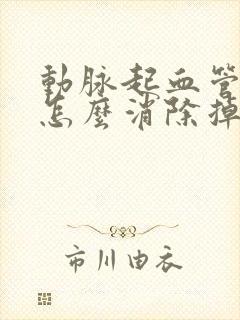 動脉起血管
怎麼消除掉
市川由衣